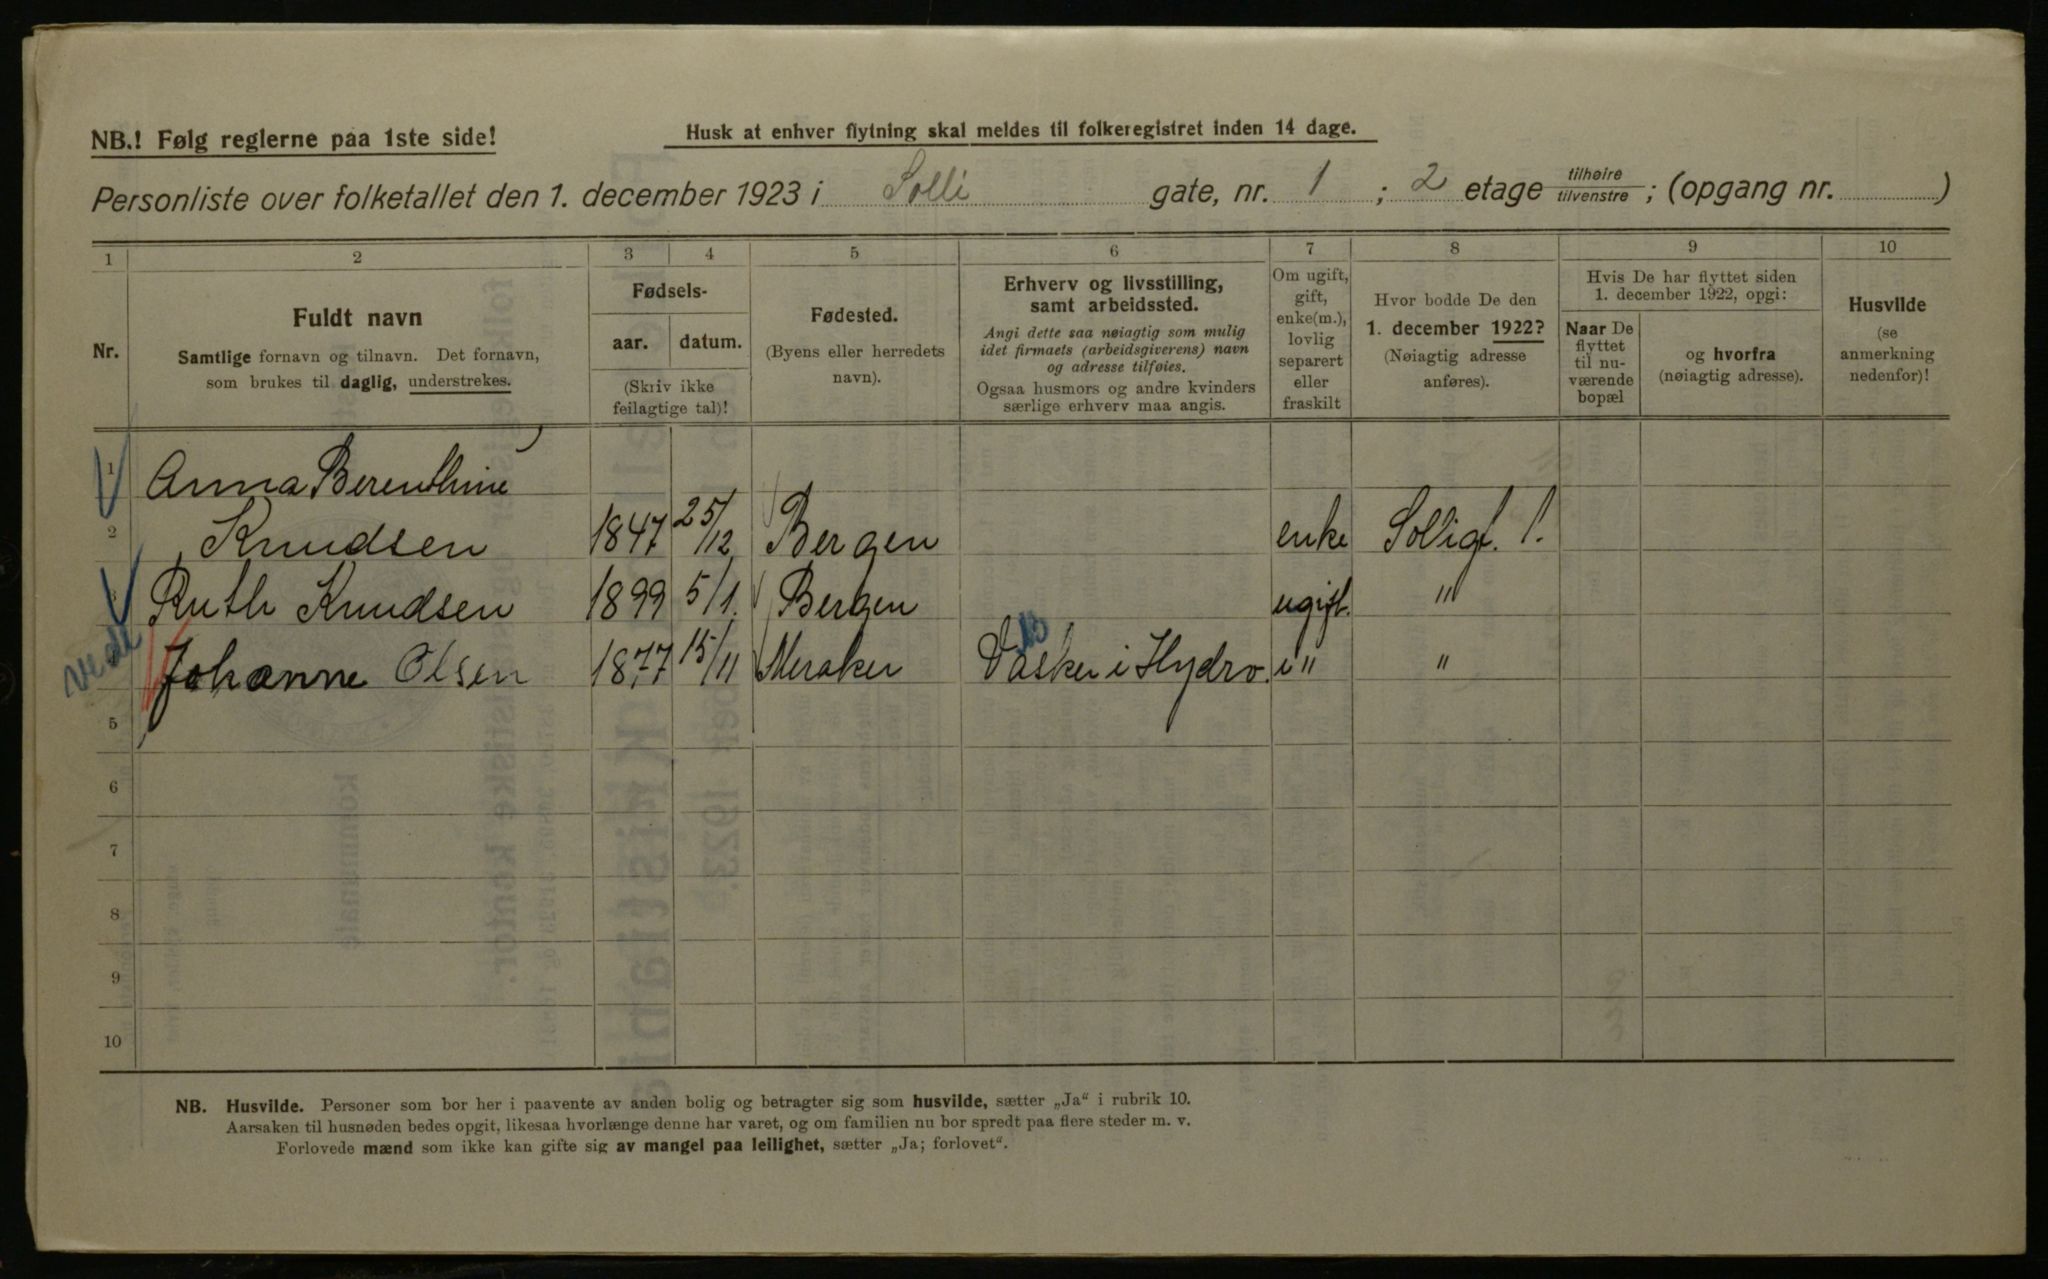 NB.! Følg reglerne paa 1ste side!
Husk at enhver flytning skal meldes til folkeregistret inden 14 dage.
Personliste over folketallet den 1. december 1923 i Solli gate, nr. 1 ; 2 etage tilhøire/tilvenstre ; (opgang nr. )
1 2 3 4 5 6 7 8 9 10
Nr.
Fuldt navn
Samtlige fornavn og tilnavn. Det fornavn,
som brukes til daglig, understrekes.
Fødsels-
aar. datum.
(Skriv ikke
feilagtige tal)!
Fødested.
(Byens eller herredets
navn).
Erhverv og livsstilling,
samt arbeidssted.
Angi dette saa nøiagtig som mulig
idet firmaets (arbeidsgiverens) navn
og adresse tilføies.
Ogsaa husmors og andre kvinders
særlige erhverv maa angis.
Om ugift,
gift,
enke(m.),
lovlig
separert
eller
fraskilt
Hvor bodde De den
1. december 1922?
(Nøiagtig adresse
anføres).
Hvis De har flyttet siden
1. december 1922, opgi:
Naar De
flyttet
til nu-
værende
bopæl
og hvorfra
(nøiagtig adresse).
Husvilde
(se
anmerkning
nedenfor)!
1 Anna Berenthine
2 Knudsen 1847 25/12 Bergen enke Solligt. 1.
3 Ruth Knudsen 1899 5/1. Bergen ugift. "
4 Johanne Olsen 1877 15/11 Meraker Vasker i Hydro. " "
5
6
7
8
9
10
NB. Husvilde. Personer som bor her i paavente av anden bolig og betragter sig som husvilde, sætter „Ja“ i rubrik 10.
Aarsaken til husnøden bedes opgit, likesaa hvorlænge denne har varet, og om familien nu bor spredt paa flere steder m. v.
Forlovede mænd som ikke kan gifte sig av mangel paa leilighet, sætter „Ja; forlovet“.